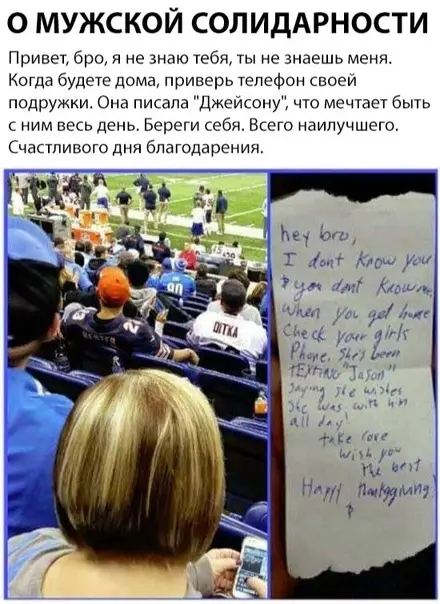 О МУЖСКОЙ СОЛИДАРНОСТИ
Привет, бро, я не знаю тебя, ты не знаешь меня.
Когда будете дома, приверь телефон своей
подружки. Она писала "Джейсону", что мечтает быть
с ним весь день. Береги себя. Всего наилучшего.
Счастливого дня благодарения.
90
DITKA
hey bro,
I dont know you
you dont know me.
When you get home
Check your girls
Phone, She's been
TEXTING "Jason"
Saying she wishes
She was with him
all day!
take care
wish you
the best
Happy thanksgiving